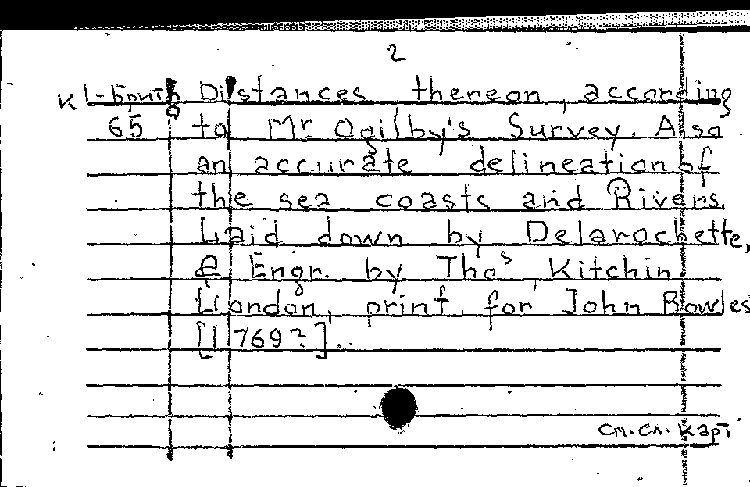 2
К 1-Брит Distances thereon, according
65 to Mr Ogilby's Survey. Also
an accurate delineation of
the sea coasts and Rivers.
Laid down by Delarochette,
& Engr. by Thos Kitchin
London, print. for John Bowles
[1769?]..
см. сл. карт